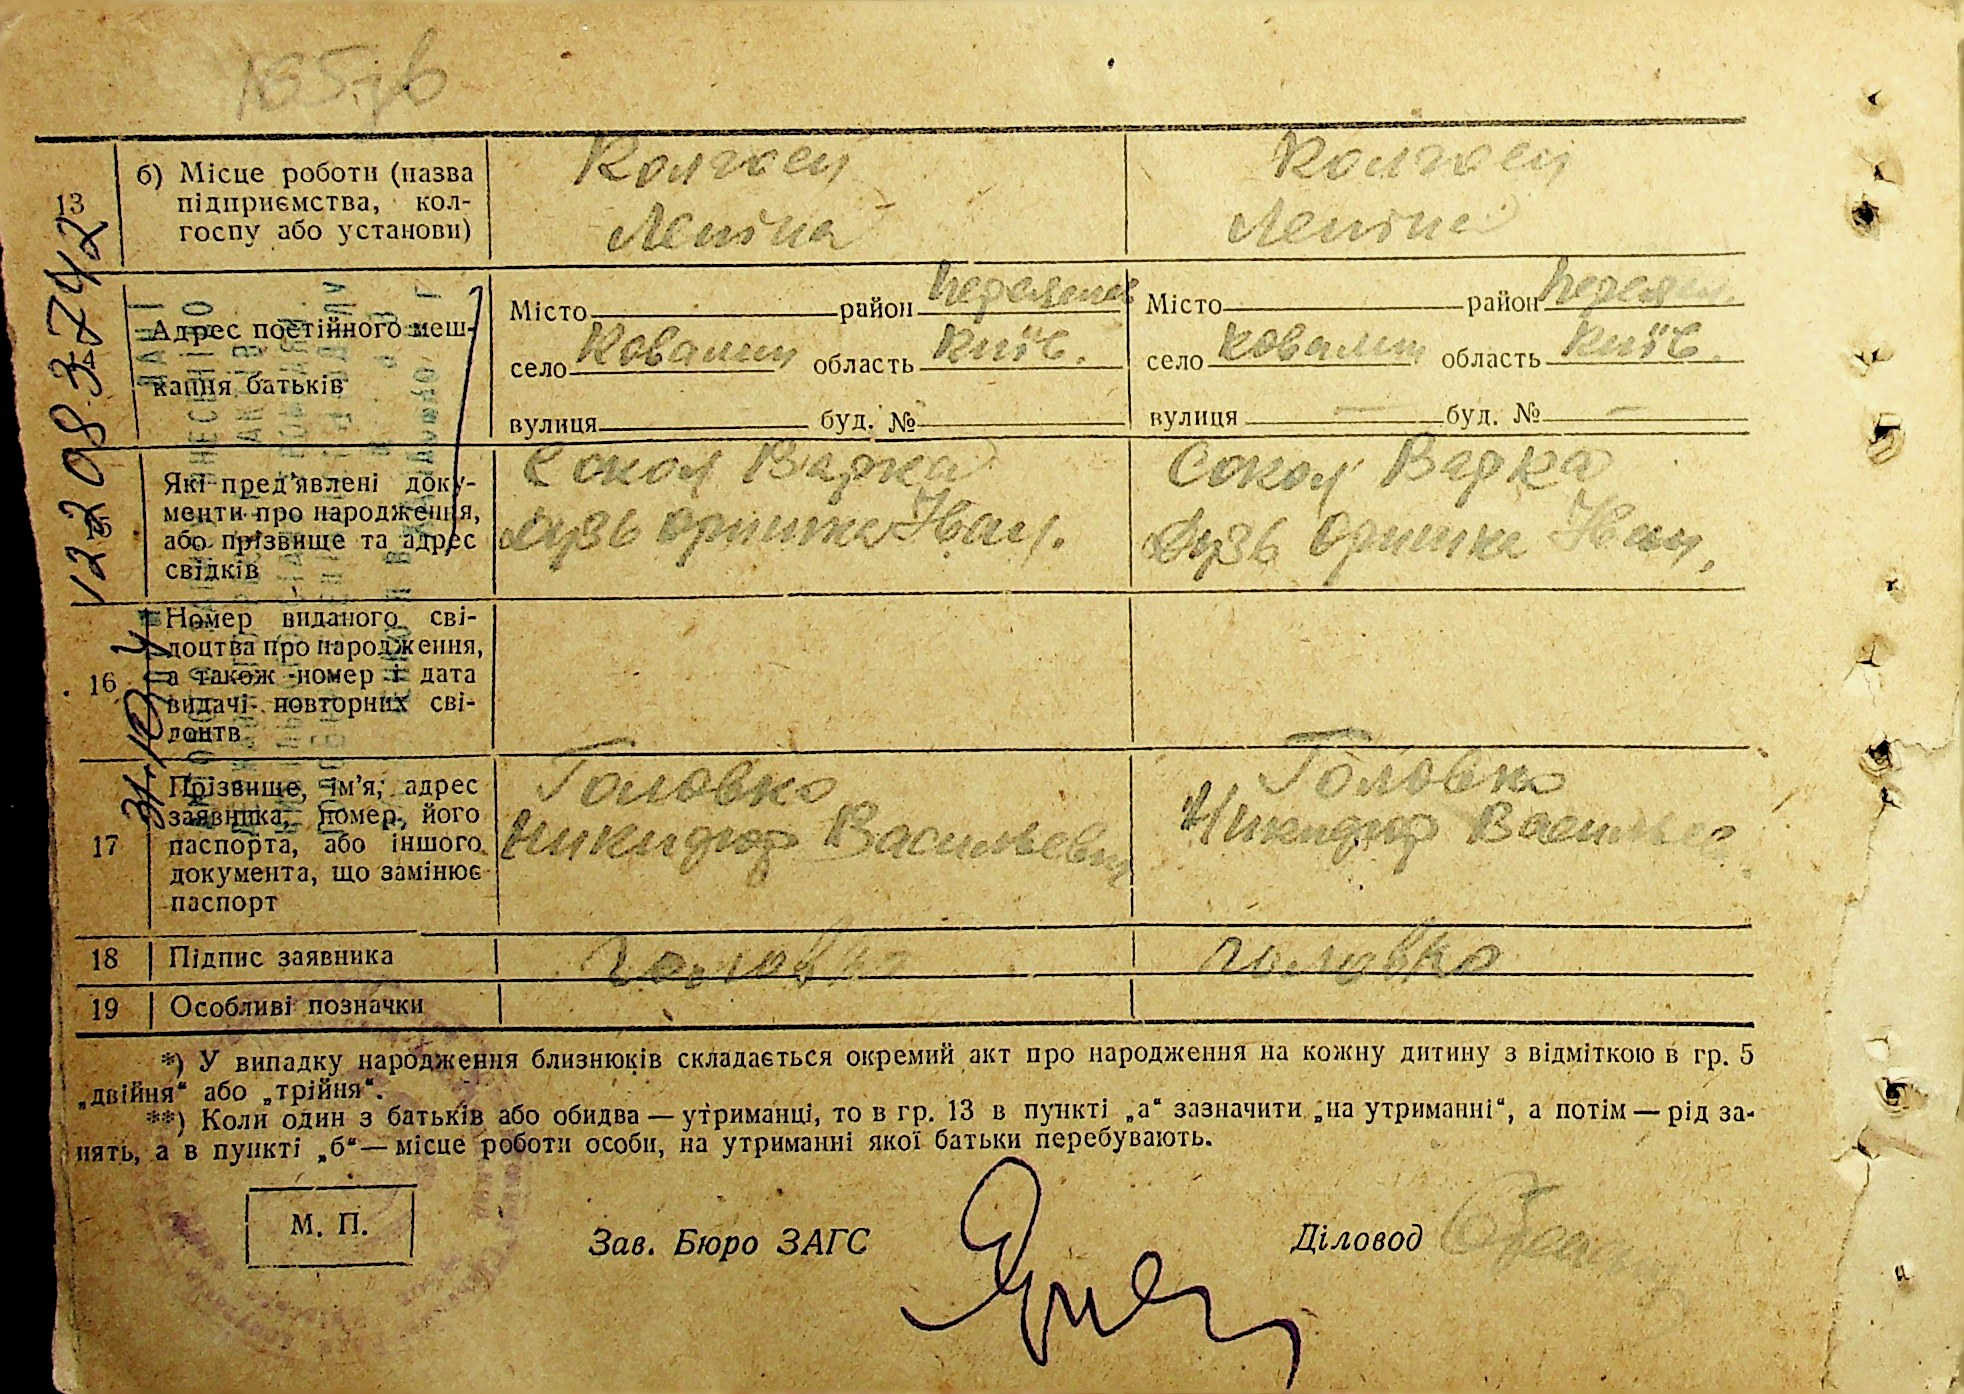 13
б) Місце роботи (назва
підприємства, кол-
госпу або установи)
Колгосп
Леніна
Колгосп
Леніна
Адрес постійного меш-
кання батьків
Місто район
село Ковалин область Київ.
вулиця буд. №
Місто район
село Ковалин область Київ.
вулиця — буд. № —
Які пред'явлені доку-
менти про народження,
або прізвище та адрес
свідків
Сокол Варка
Дузь Оришка Іван.
Сокол Варка
Дузь Оришка Іван.
16
Номер виданого сві-
доцтва про народження,
а також номер і дата
видачі повторних сві-
доцтв
17
Прізвище, ім'я, адрес
заявника, номер його
паспорта, або іншого
документа, що замінює
паспорт
Головко
Никифор Васильевич
Головко
Никифор
18 Підпис заявника
Головко
головко
19 Особливі позначки
*) У випадку народження близнюків складається окремий акт про народження на кожну дитину з відміткою в гр. 5
„двійня“ або „трійня“.
**) Коли один з батьків або обидва — утриманці, то в гр. 13 в пункті „а“ зазначити „на утриманні“, а потім — рід за-
нять, а в пункті „б“ — місце роботи особи, на утриманні якої батьки перебувають.
М. П.
Зав. Бюро ЗАГС
Діловод
12208.3742